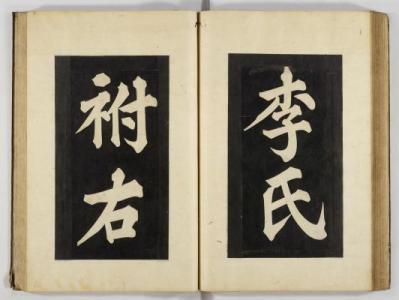 李氏
祔右